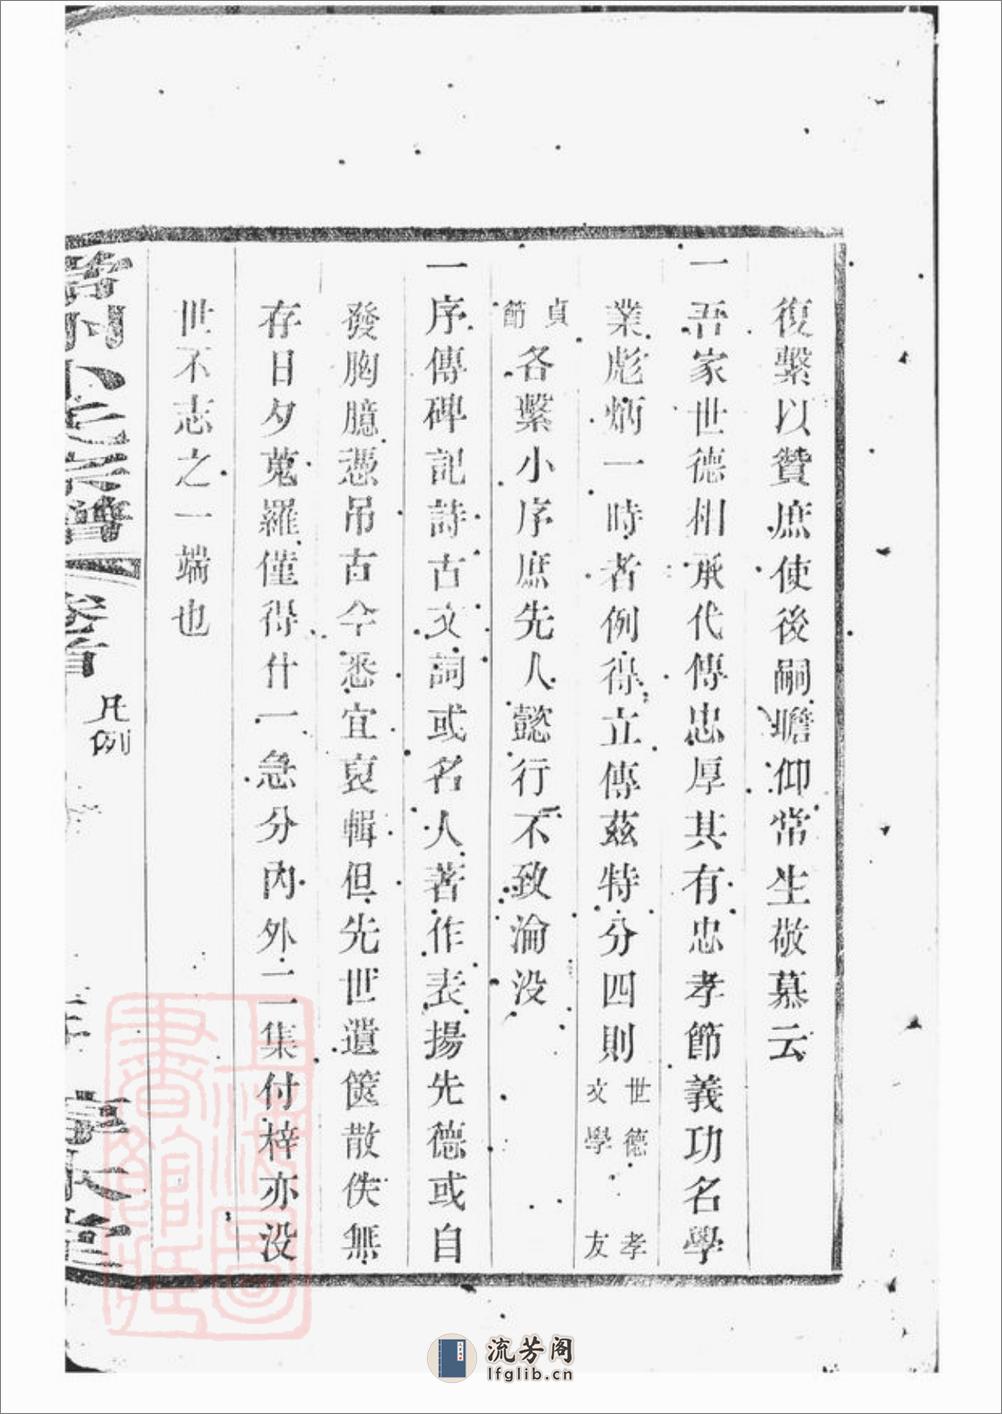 復繫以贊庶使後嗣瞻仰常生敬慕云
一吾家世德相承代傳忠厚其有忠孝節義功名學
業彪炳一時者例得立傳茲特分四則世德 孝友 文學
貞節各繫小序庶先人懿行不致淪没
一序傳碑記詩古文詞或名人著作表揚先德或自
發胸臆憑吊古今悉宜裒輯但先世遺篋散佚無
存日夕蒐羅僅得什一急分內外二集付梓亦没
世不志之一端也
宗譜
卷首
凡例
享水堂
上海圖書館藏
流芳阁
lfglib.cn